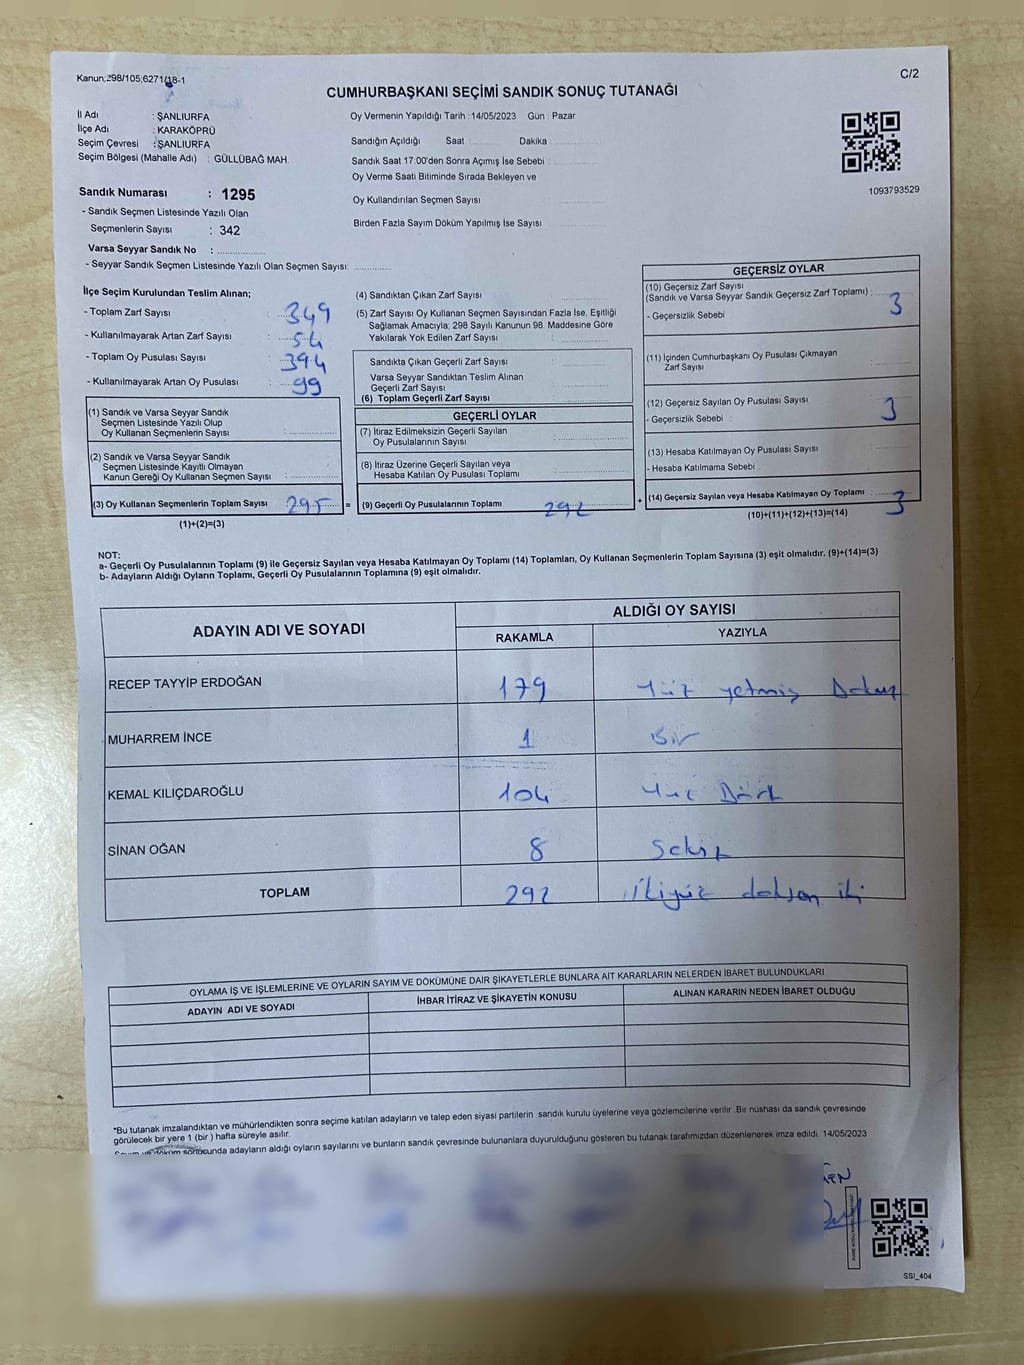 Kanun;298/105,6271/18-1
C/2
CUMHURBAŞKANI SEÇİMİ SANDIK SONUÇ TUTANAĞI
İl Adı : ŞANLIURFA
İlçe Adı : KARAKÖPRÜ
Seçim Çevresi : ŞANLIURFA
Seçim Bölgesi (Mahalle Adı) : GÜLLÜBAĞ MAH.
Oy Vermenin Yapıldığı Tarih : 14/05/2023 Gün : Pazar
Sandığın Açıldığı Saat Dakika
Sandık Saat 17:00'den Sonra Açımış İse Sebebi
Oy Verme Saati Bitiminde Sırada Bekleyen ve
Oy Kullandırılan Seçmen Sayısı
Birden Fazla Sayım Döküm Yapılmış İse Sayısı
1093793529
Sandık Numarası : 1295
- Sandık Seçmen Listesinde Yazılı Olan
Seçmenlerin Sayısı : 342
Varsa Seyyar Sandık No :
- Seyyar Sandık Seçmen Listesinde Yazılı Olan Seçmen Sayısı:
İlçe Seçim Kurulundan Teslim Alınan;
- Toplam Zarf Sayısı : 349
- Kullanılmayarak Artan Zarf Sayısı : 54
- Toplam Oy Pusulası Sayısı : 394
- Kullanılmayarak Artan Oy Pusulası : 99
(1) Sandık ve Varsa Seyyar Sandık
Seçmen Listesinde Yazılı Olup
Oy Kullanan Seçmenlerin Sayısı :
(2) Sandık ve Varsa Seyyar Sandık
Seçmen Listesinde Kayıtlı Olmayan
Kanun Gereği Oy Kullanan Seçmen Sayısı :
(3) Oy Kullanan Seçmenlerin Toplam Sayısı 295
(1)+(2)=(3)
=
(4) Sandıktan Çıkan Zarf Sayısı
(5) Zarf Sayısı Oy Kullanan Seçmen Sayısından Fazla İse, Eşitliği
Sağlamak Amacıyla; 298 Sayılı Kanunun 98. Maddesine Göre
Yakılarak Yok Edilen Zarf Sayısı :
Sandıkta Çıkan Geçerli Zarf Sayısı
Varsa Seyyar Sandıktan Teslim Alınan
Geçerli Zarf Sayısı
(6) Toplam Geçerli Zarf Sayısı
GEÇERLİ OYLAR
(7) İtiraz Edilmeksizin Geçerli Sayılan
Oy Pusulalarının Sayısı
(8) İtiraz Üzerine Geçerli Sayılan veya
Hesaba Katılan Oy Pusulası Toplamı
(9) Geçerli Oy Pusulalarının Toplamı 292
+
GEÇERSİZ OYLAR
(10) Geçersiz Zarf Sayısı
(Sandık ve Varsa Seyyar Sandık Geçersiz Zarf Toplamı) : 3
- Geçersizlik Sebebi
(11) İçinden Cumhurbaşkanı Oy Pusulası Çıkmayan
Zarf Sayısı
(12) Geçersiz Sayılan Oy Pusulası Sayısı 3
- Geçersizlik Sebebi :
(13) Hesaba Katılmayan Oy Pusulası Sayısı
- Hesaba Katılmama Sebebi
(14) Geçersiz Sayılan veya Hesaba Katılmayan Oy Toplamı : 3
(10)+(11)+(12)+(13)=(14)
NOT:
a- Geçerli Oy Pusulalarının Toplamı (9) ile Geçersiz Sayılan veya Hesaba Katılmayan Oy Toplamı (14) Toplamları, Oy Kullanan Seçmenlerin Toplam Sayısına (3) eşit olmalıdır. (9)+(14)=(3)
b- Adayların Aldığı Oyların Toplamı, Geçerli Oy Pusulalarının Toplamına (9) eşit olmalıdır.
ADAYIN ADI VE SOYADI
ALDIĞI OY SAYISI
RAKAMLA YAZIYLA
RECEP TAYYİP ERDOĞAN 179 Yüz yetmiş Dokuz
MUHARREM İNCE 1 Bir
KEMAL KILIÇDAROĞLU 104 Yüz Dört
SİNAN OĞAN 8 Sekiz
TOPLAM 292 ikiyüz doksan iki
OYLAMA İŞ VE İŞLEMLERİNE VE OYLARIN SAYIM VE DÖKÜMÜNE DAİR ŞİKAYETLERLE BUNLARA AİT KARARLARIN NELERDEN İBARET BULUNDUKLARI
ADAYIN ADI VE SOYADI İHBAR İTİRAZ VE ŞİKAYETİN KONUSU ALINAN KARARIN NEDEN İBARET OLDUĞU
*Bu tutanak imzalandıktan ve mühürlendikten sonra seçime katılan adayların ve talep eden siyasi partilerin sandık kurulu üyelerine veya gözlemcilerine verilir. Bir nüshası da sandık çevresinde
görülecek bir yere 1 (bir) hafta süreyle asılır.
Sayım ve döküm sonucunda adayların aldığı oyların sayılarını ve bunların sandık çevresinde bulunanlara duyurulduğunu gösteren bu tutanak tarafımızdan düzenlenerek imza edildi. 14/05/2023
SSI_404